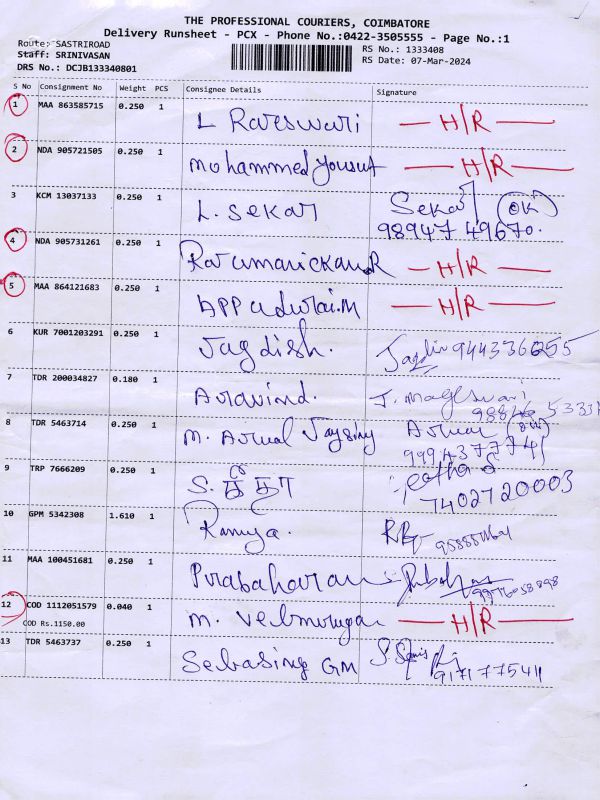 THE PROFESSIONAL COURIERS, COIMBATORE
Delivery Runsheet - PCX - Phone No.:0422-3505555 - Page No.:1
Route: SASTRIROAD
RS No.: 1333408
Staff: SRINIVASAN
RS Date: 07-Mar-2024
DRS No.: DCJB133340801
S No Consignment No Weight PCS Consignee Details Signature
1 MAA 863585715 0.250 1 L Rareswari H/R
2 NDA 905721505 0.250 1 Mohammed Yousuf H/R
3 KCM 13037133 0.250 1 L. Sekar Sekar OK
98947 49670.
4 NDA 905731261 0.250 1 H/R
5 MAA 864121683 0.250 1 Appadurai.M H/R
6 KUR 7001203291 0.250 1 Jagdish.
7 TDR 200034827 0.180 1 Aravind.
8 TDR 5463714 0.250 1 M. Arual Jaysing
9 TRP 7666209 0.250 1 S. கீதா
7402720003
10 GPM 5342308 1.610 1 Ramya.
11 MAA 100451681 0.250 1 Pirabaharan
12 COD 1112051579 0.040 1 M. Velmurugan H/R
COD Rs.1150.00
13 TDR 5463737 0.250 1 Sebasing GM
9171775411